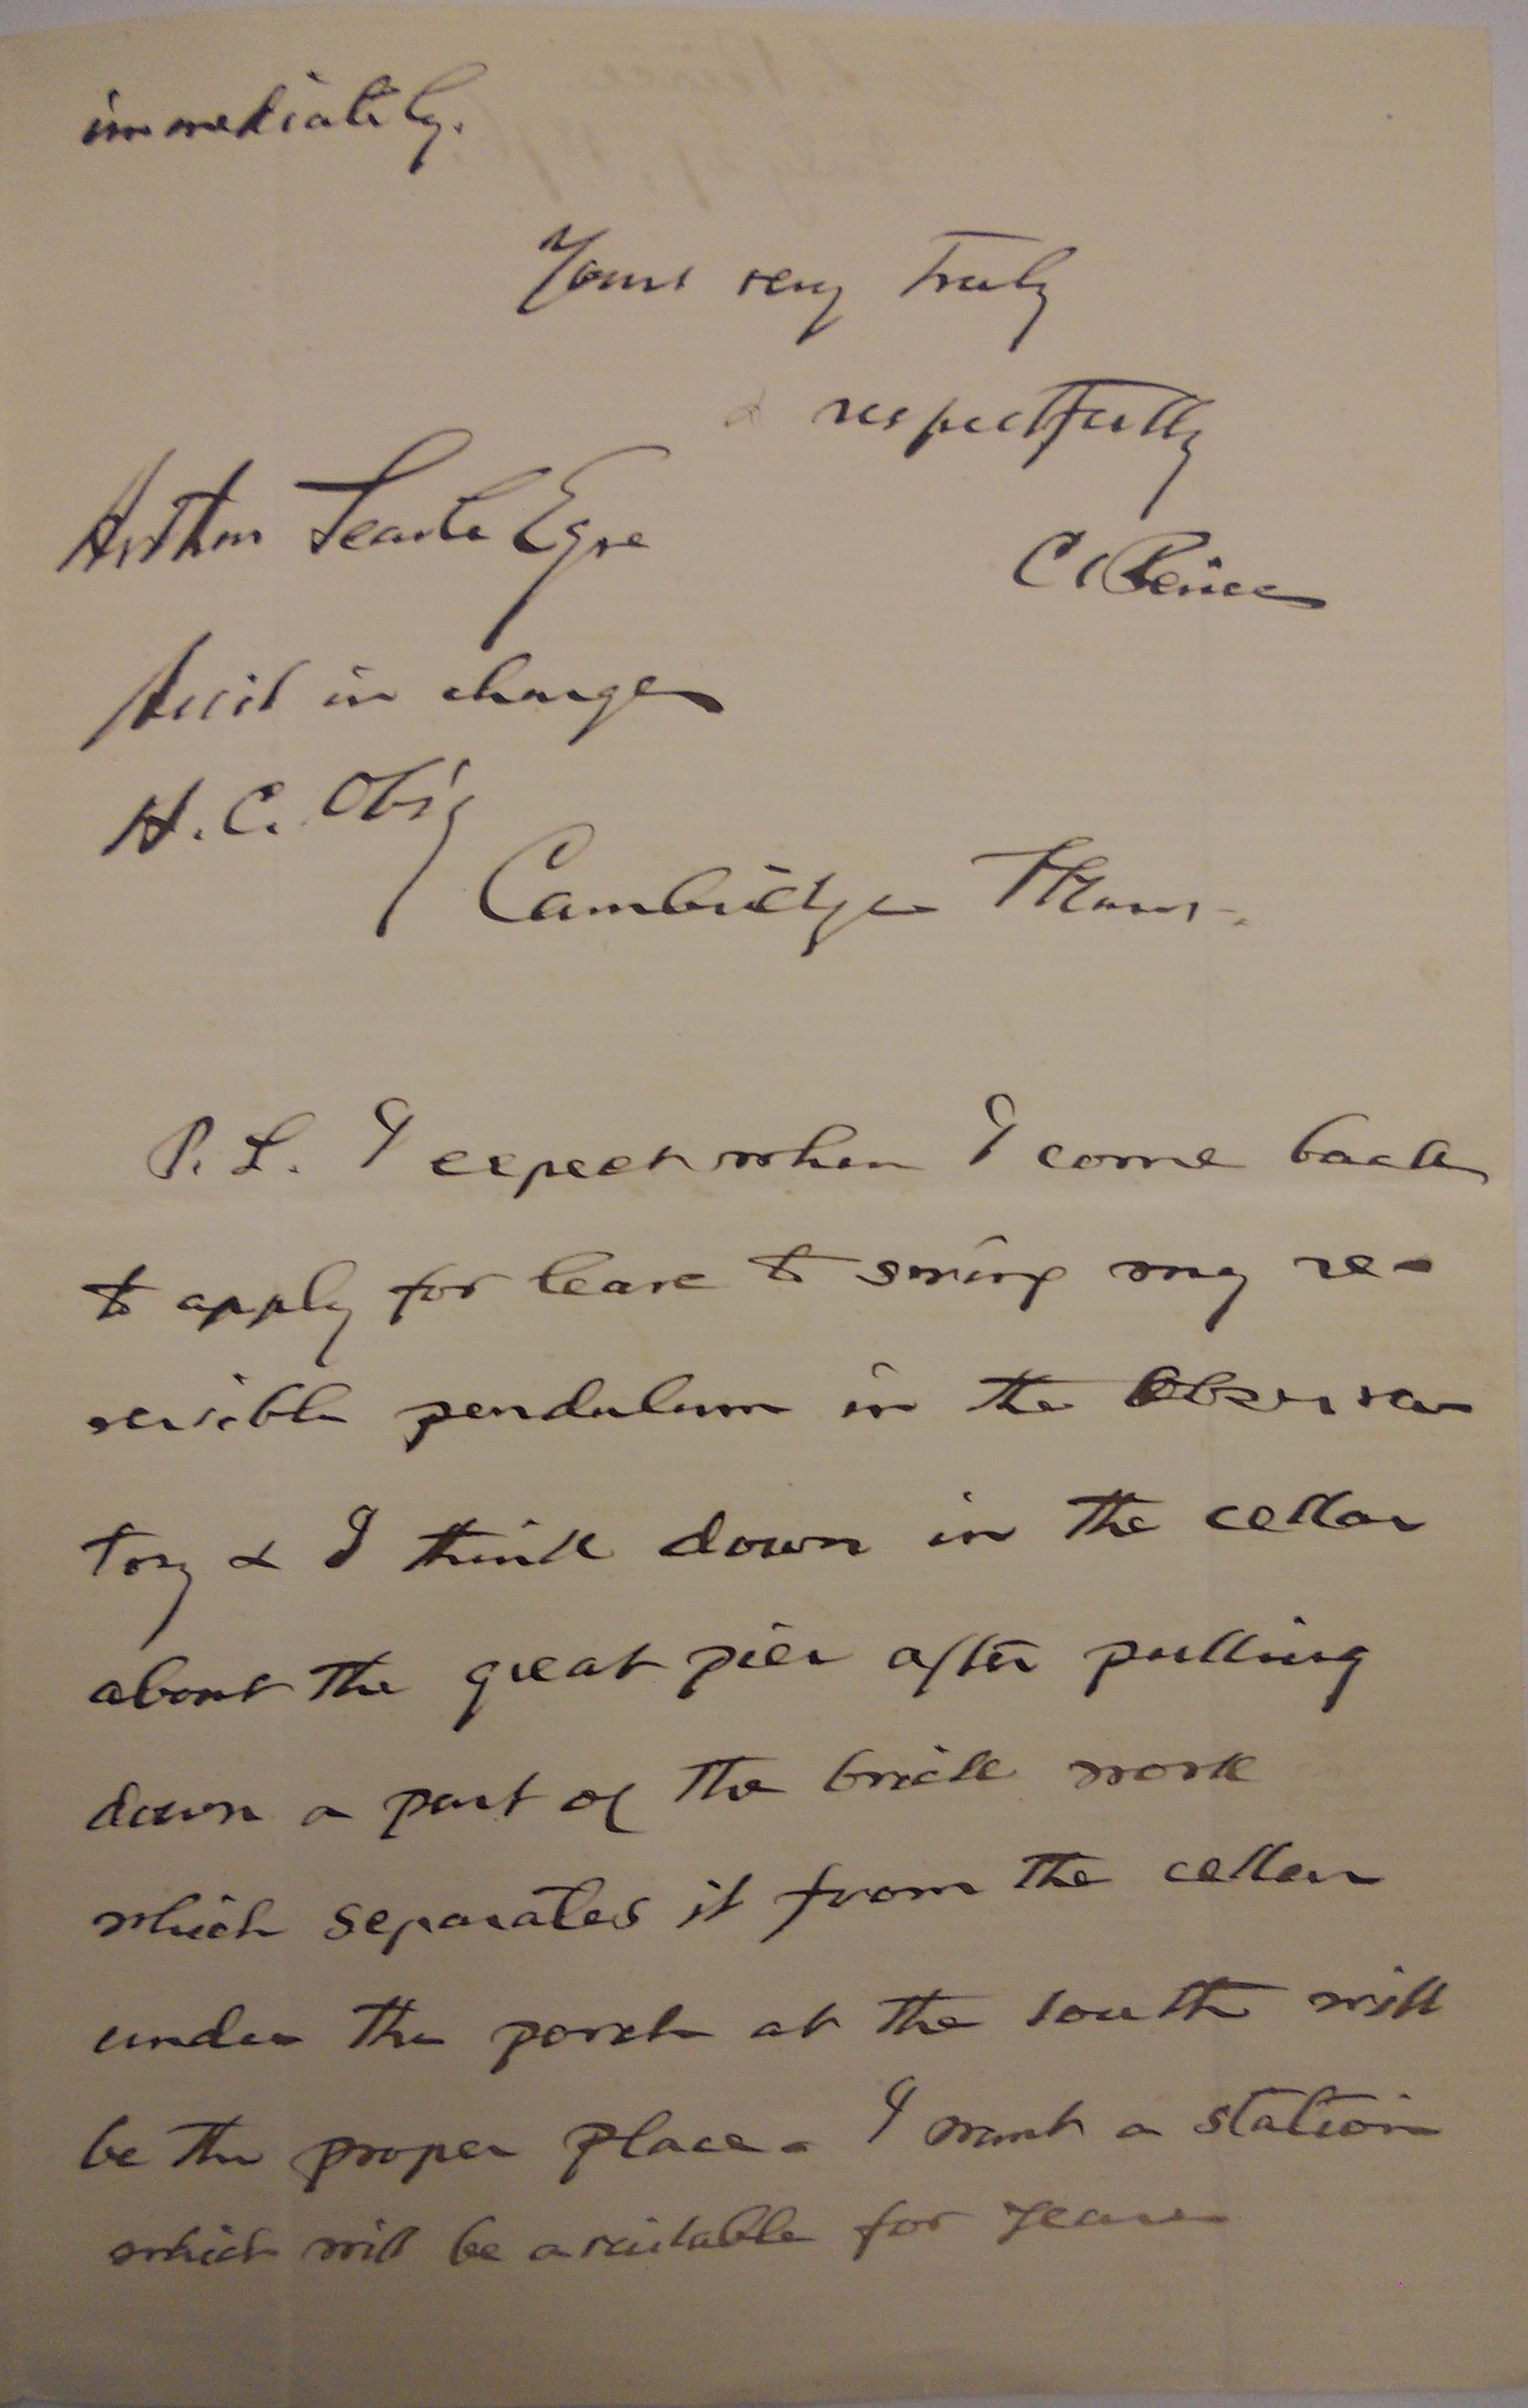 immediately.
Yours very truly
& respectfully
Arthur Searle Esqre
C S Peirce
Assist in charge
H. C. Obs'y
Cambridge Mass.
P. S. I expect when I come back
to apply for leave to swing my re-
versible pendulum in the Observa-
tory & I think down in the cellar
about the great pier after pulling
down a part of the brick work
which separates it from the cellar
under the porch at the south will
be the proper place. I want a station
which will be available for years